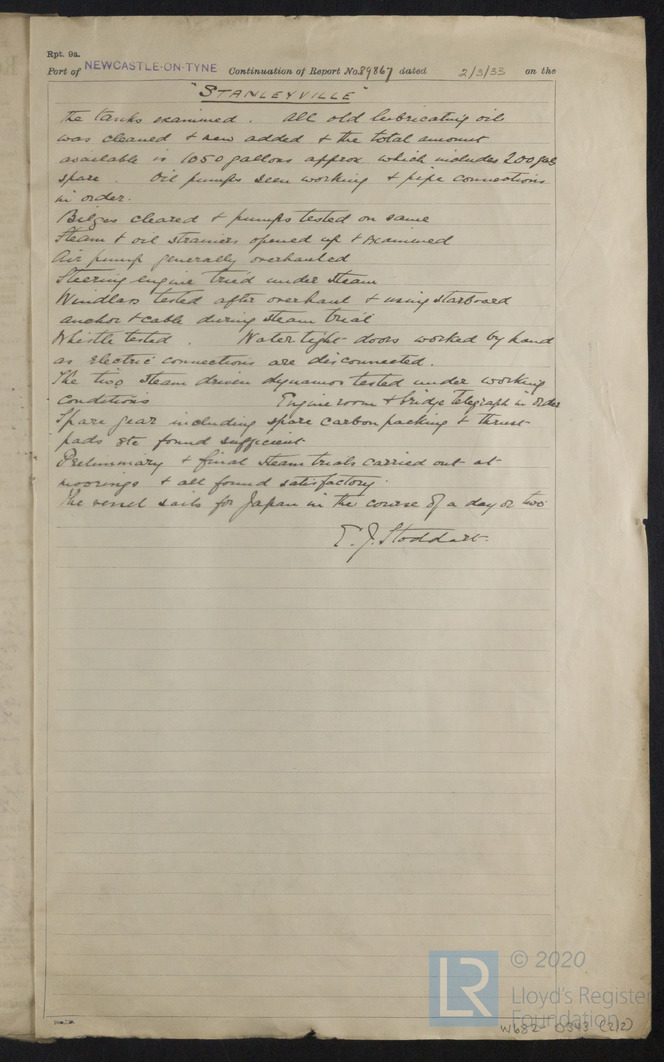 Rpt. 9a.
Port of NEWCASTLE-ON-TYNE Continuation of Report No. 89867 dated 2/3/33 on the
"STANLEYVILLE"
the tanks examined. All old lubricating oil
was cleaned & new added & the total amount
available is 1050 gallons approx which includes 200 gals
spare. Oil pumps seen working & pipe connections
in order.
Bilges cleared & pumps tested on same
Steam & oil strainers opened up & examined
Air pump generally overhauled
Steering engine tried under steam
Windlass tested after overhaul & using starboard
anchor & cable during steam trial
Whistle tested. Water tight doors worked by hand
as electric connections are disconnected.
The two steam driven dynamos tested under working
conditions Engineroom & bridge telegraph in order
Spare gear including spare carbon packing & thrust
pads etc found sufficient
Preliminary & final steam trials carried out at
moorings & all found satisfactory.
The vessel sails for Japan in the course of a day or two
E. J. Stoddart.
© 2020
LR Lloyd's Register
Foundation
W682-0343 (2/2)